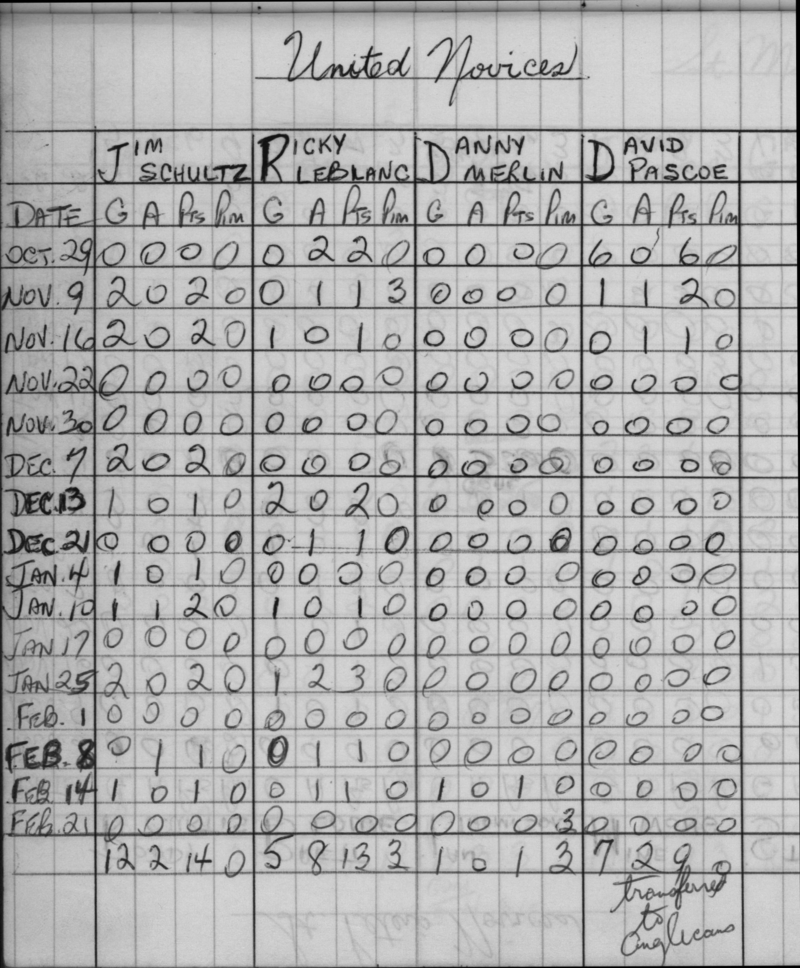 United Novices
JIM SCHULTZ RICKY LEBLANC DANNY MERLIN DAVID PASCOE
DATE G A Pts Pim G A Pts Pim G A Pts Pim G A Pts Pim
OCT. 29 0 0 0 0 0 2 2 0 0 0 0 0 6 0 6 0
NOV. 9 2 0 2 0 0 1 1 3 0 0 0 0 1 1 2 0
NOV. 16 2 0 2 0 1 0 1 0 0 0 0 0 0 1 1 0
NOV. 22 0 0 0 0 0 0 0 0 0 0 0 0 0 0 0 0
NOV. 30 0 0 0 0 0 0 0 0 0 0 0 0 0 0 0 0
DEC. 7 2 0 2 0 0 0 0 0 0 0 0 0 0 0 0 0
DEC. 13 1 0 1 0 2 0 2 0 0 0 0 0 0 0 0 0
DEC 21 0 0 0 0 0 1 1 0 0 0 0 0 0 0 0 0
JAN. 4 1 0 1 0 0 0 0 0 0 0 0 0 0 0 0 0
JAN. 10 1 1 2 0 1 0 1 0 0 0 0 0 0 0 0 0
JAN 17 0 0 0 0 0 0 0 0 0 0 0 0 0 0 0 0
JAN 25 2 0 2 0 1 2 3 0 0 0 0 0 0 0 0 0
FEB. 1 0 0 0 0 0 0 0 0 0 0 0 0 0 0 0 0
FEB. 8 0 1 1 0 0 1 1 0 0 0 0 0 0 0 0 0
FEB 14 1 0 1 0 0 1 1 0 1 0 1 0 0 0 0 0
FEB. 21 0 0 0 0 0 0 0 0 0 0 0 3 0 0 0 0
12 2 14 0 5 8 13 3 1 0 1 3 7 2 9 0
transferred
to
Anglicans